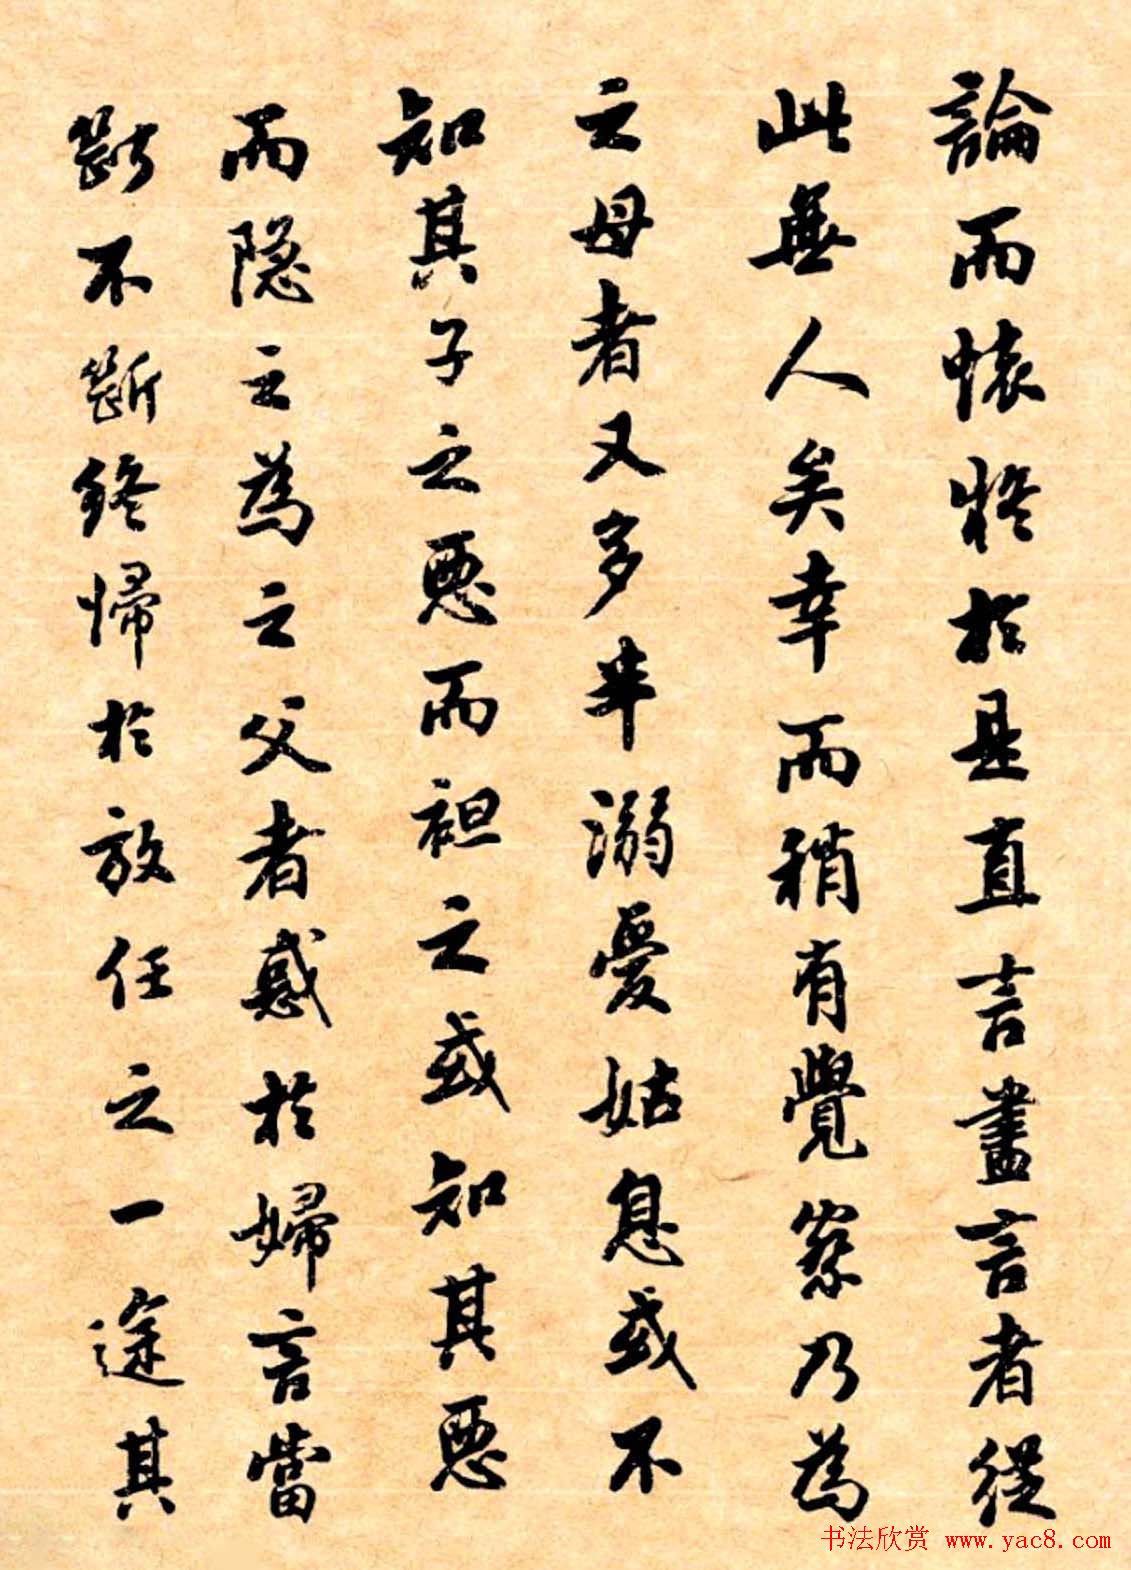 論而懷將於是直言盡言者從
此無人矣幸而稍有覺察乃為
之母者又多半溺愛姑息或不
知其子之惡而袒之或知其惡
而隐之為之父者惑於婦言當
斷不斷終歸於放任之一途其
书法欣赏 www.yac8.com